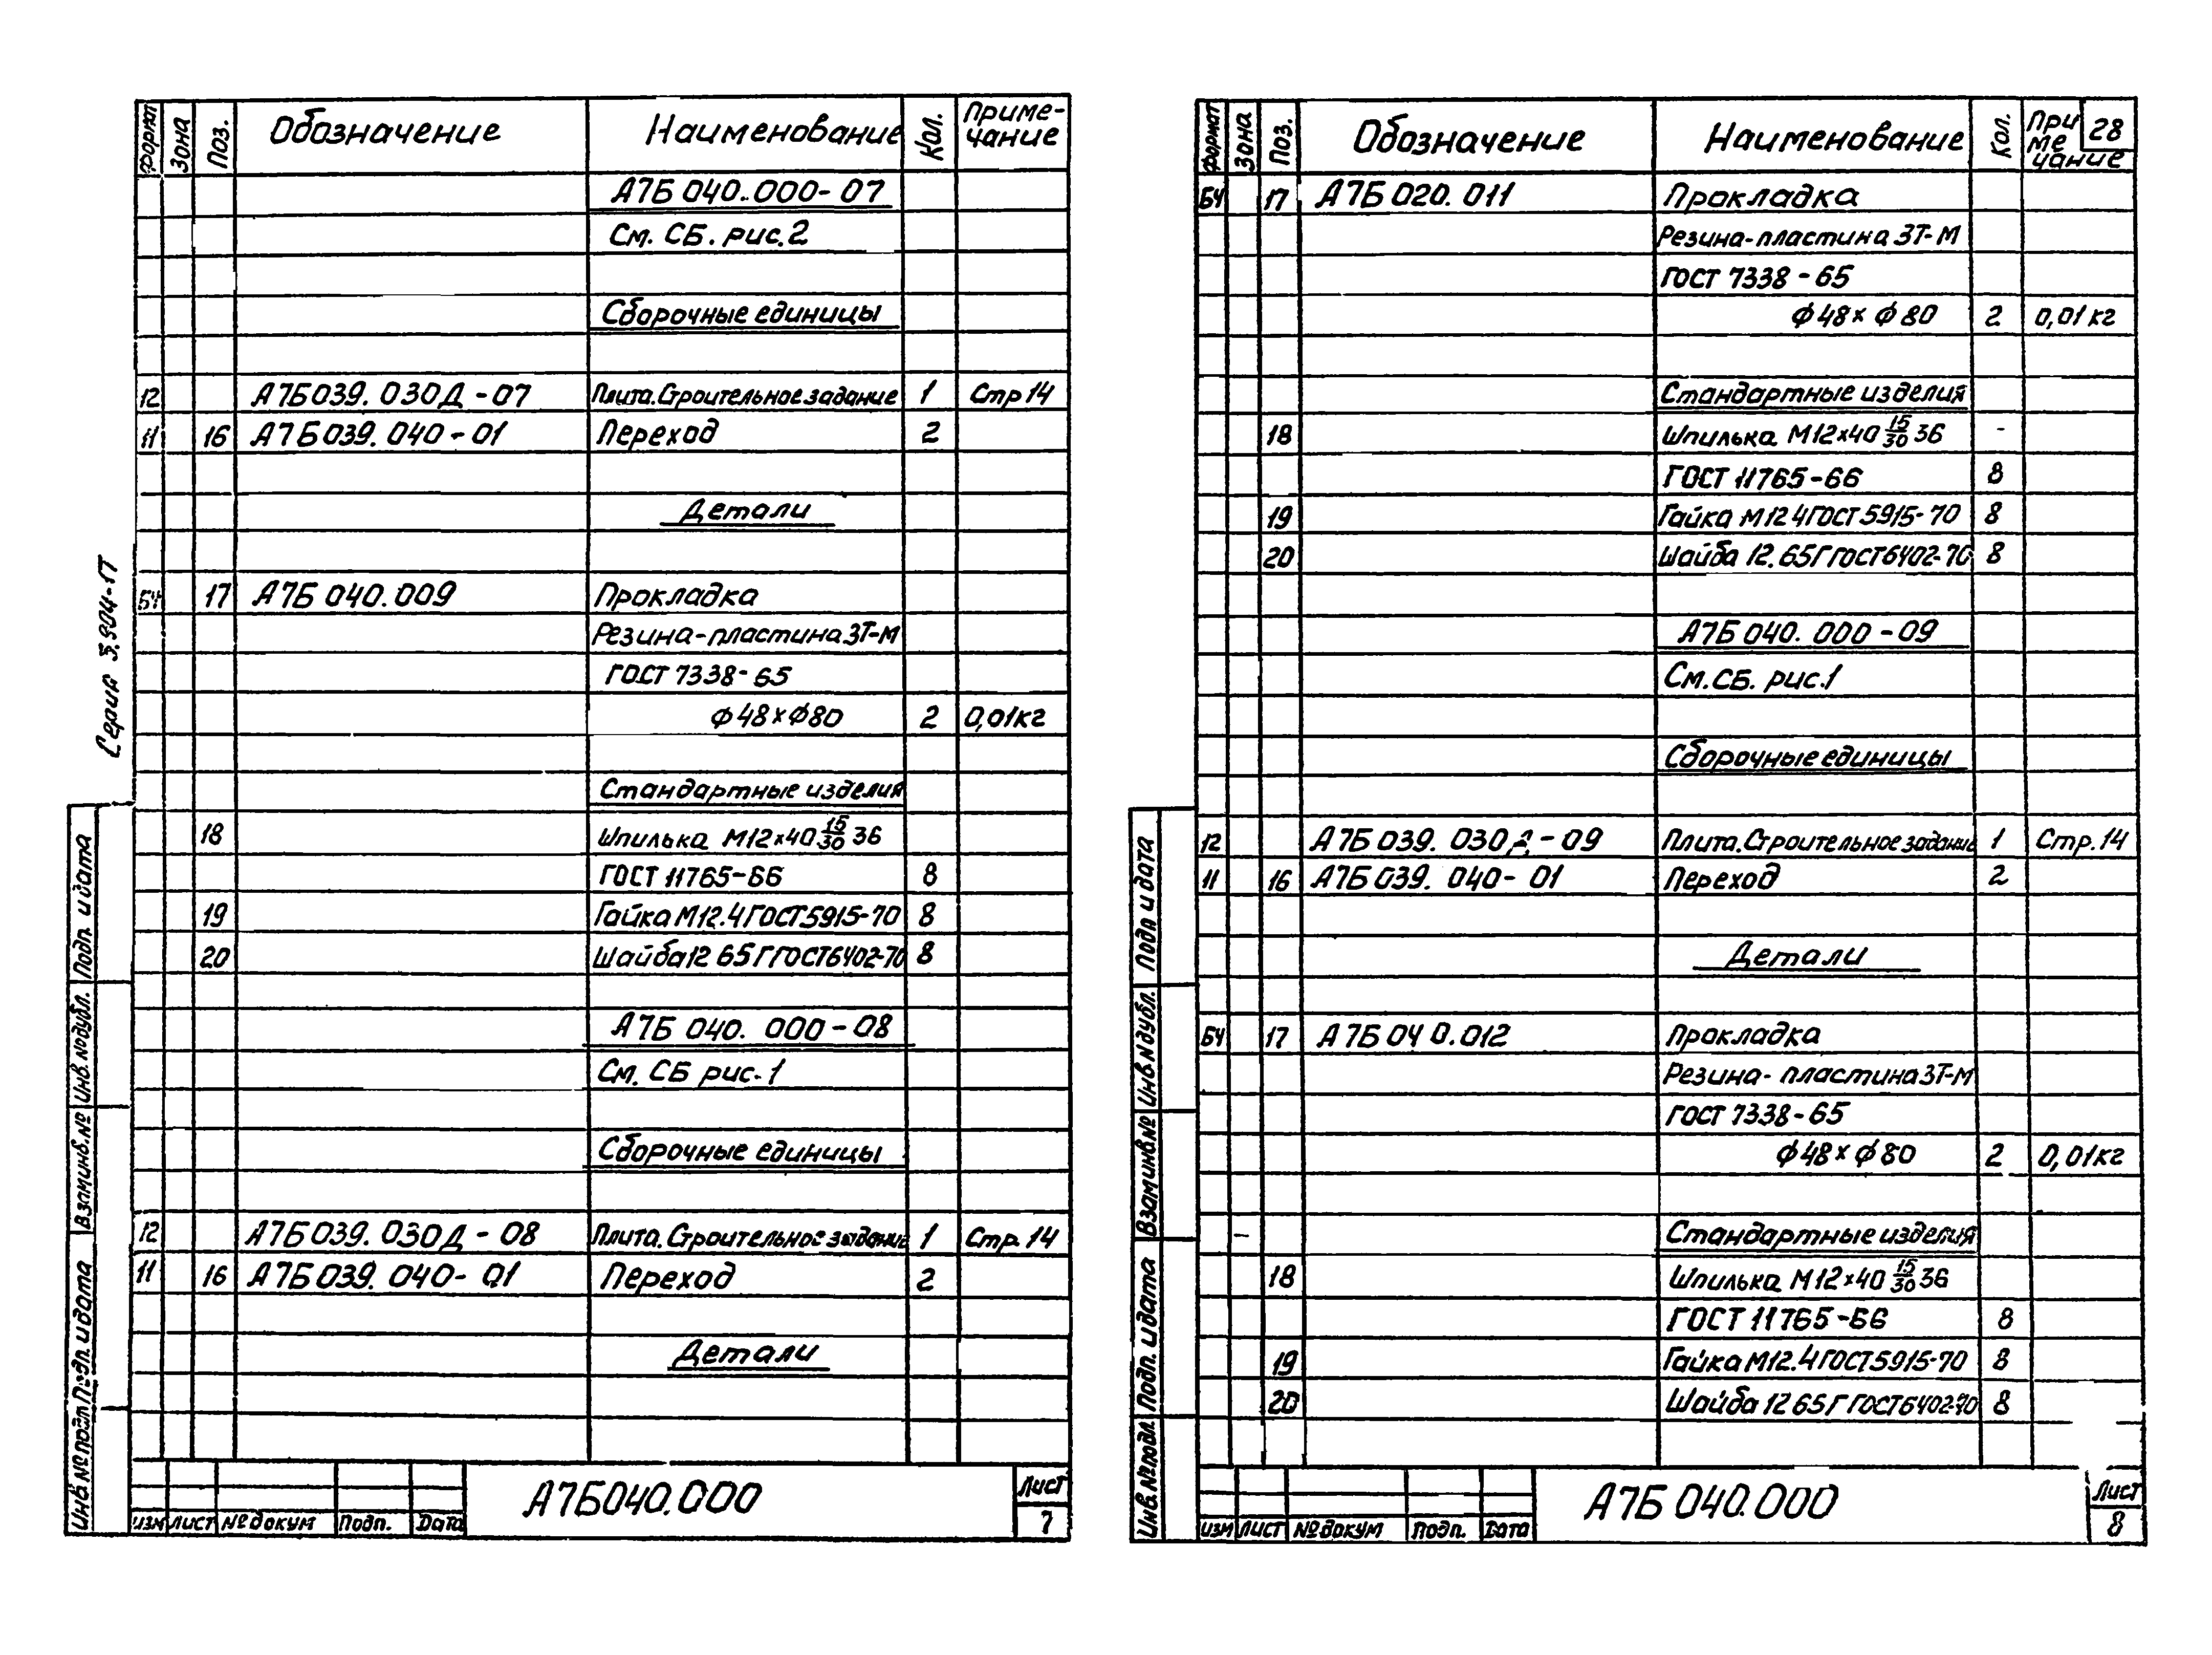 Серия 5.904-17
Формат Зона Поз. Обозначение Наименование Кол. Приме-
чание
А7Б 040.000-07
См. СБ. рис.2
Сборочные единицы
12 А7Б039.030Д-07 Плита.Строительное задание 1 Стр 14
11 16 А7Б039.040-01 Переход 2
Детали
БЧ 17 А7Б 040.009 Прокладка
Резина-пластина 3Т-М
ГОСТ 7338-65
ф48хф80 2 0,01кг
Стандартные изделия
18 Шпилька М12х40 15/30 36
ГОСТ 11765-66 8
19 Гайка М12.4ГОСТ5915-70 8
20 Шайба12 65Г ГОСТ6402-70 8
А7Б 040. 000-08
См. СБ рис.1
Сборочные единицы
12 А7Б039.030Д-08 Плита.Строительное задание 1 Стр. 14
11 16 А7Б039.040-01 Переход 2
Детали
Инв.№подл Подп. и дата Взам.инв.№ Инв.№дубл. Подп. и дата
изм лист №докум Подп. Дата
А7Б040.000
Лист
7
Формат Зона Поз. Обозначение Наименование Кол. При
ме
чание
28
БЧ 17 А7Б 020.011 Прокладка
Резина-пластина 3Т-М
ГОСТ 7338-65
ф48х ф80 2 0,01кг
Стандартные изделия
18 Шпилька М12х40 15/30 36 -
ГОСТ 11765-66 8
19 Гайка М12 4ГОСТ5915-70 8
20 Шайба 12.65Г ГОСТ6402-70 8
А7Б040.000-09
См.СБ. рис.1
Сборочные единицы
12 А7Б039.030Д-09 Плита.Строительное задание 1 Стр.14
11 16 А7Б039.040-01 Переход 2
Детали
БЧ 17 А7Б040.012 Прокладка
Резина-пластина 3Т-М
ГОСТ 7338-65
ф48хф80 2 0,01кг
Стандартные изделия
18 Шпилька М12х40 15/30 36
ГОСТ 11765-66 8
19 Гайка М12.4ГОСТ5915-70 8
20 Шайба 12 65Г ГОСТ6402-70 8
Инв.№подл. Подп. и дата Взам.инв.№ Инв.№дубл. Подп и дата
изм лист №докум Подп. Дата
А7Б 040.000
Лист
8